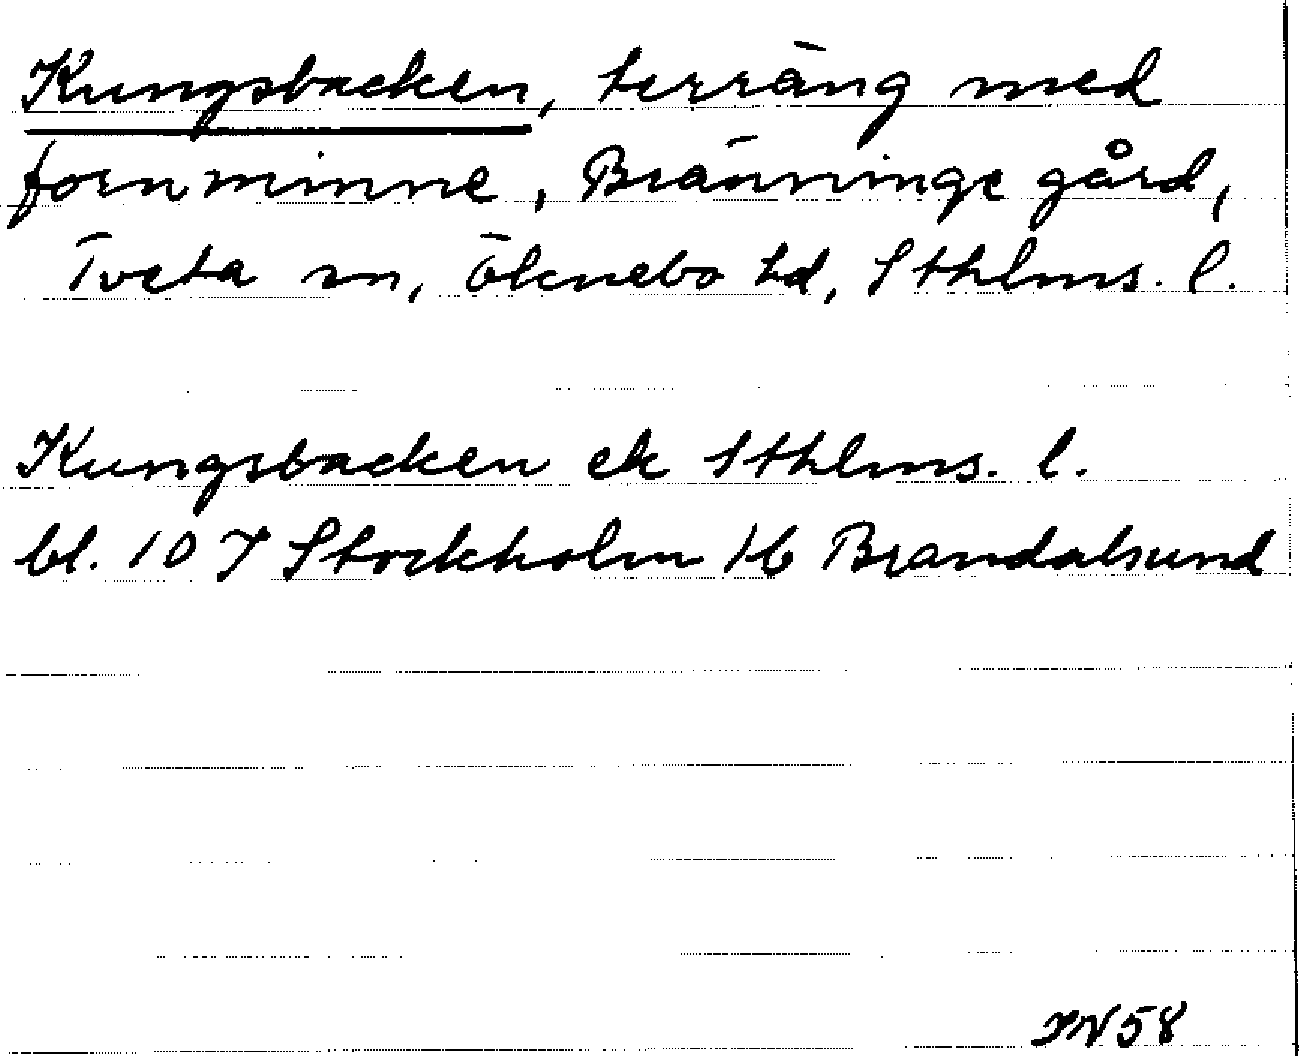 Kungsbacken, terräng med
fornminne, Bränninge gård,
Tveta sn, Öknebo hd, Sthlms. l.
Kungsbacken ek Sthlms. l.
bl. 10 I Stockholm 1b Brandalsund
58